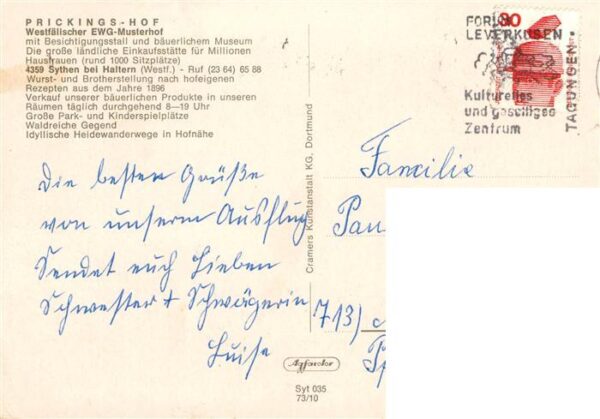 PRICKINGS-HOF
Westfälischer EWG-Musterhof
mit Besichtigungsstall und bäuerlichem Museum
Die große ländliche Einkaufsstätte für Millionen
Hausfrauen (rund 1000 Sitzplätze)
4359 Sythen bei Haltern (Westf.) - Ruf (23 64) 65 88
Wurst- und Brotherstellung nach hofeigenen
Rezepten aus dem Jahre 1896
Verkauf unserer bäuerlichen Produkte in unseren
Räumen täglich durchgehend 8—19 Uhr
Große Park- und Kinderspielplätze
Waldreiche Gegend
Idyllische Heidewanderwege in Hofnähe
Die besten Grüße
von unserm Ausflug
Sendet euch Lieben
Schwester + Schwägerin
Luise
Cramers Kunstanstalt KG, Dortmund
Agfacolor
Syt 035
73/10
FORUM
LEVERKUSEN
Kulturelles
und geselliges
Zentrum
TAGUNGEN
30
Familie
Pau
713)